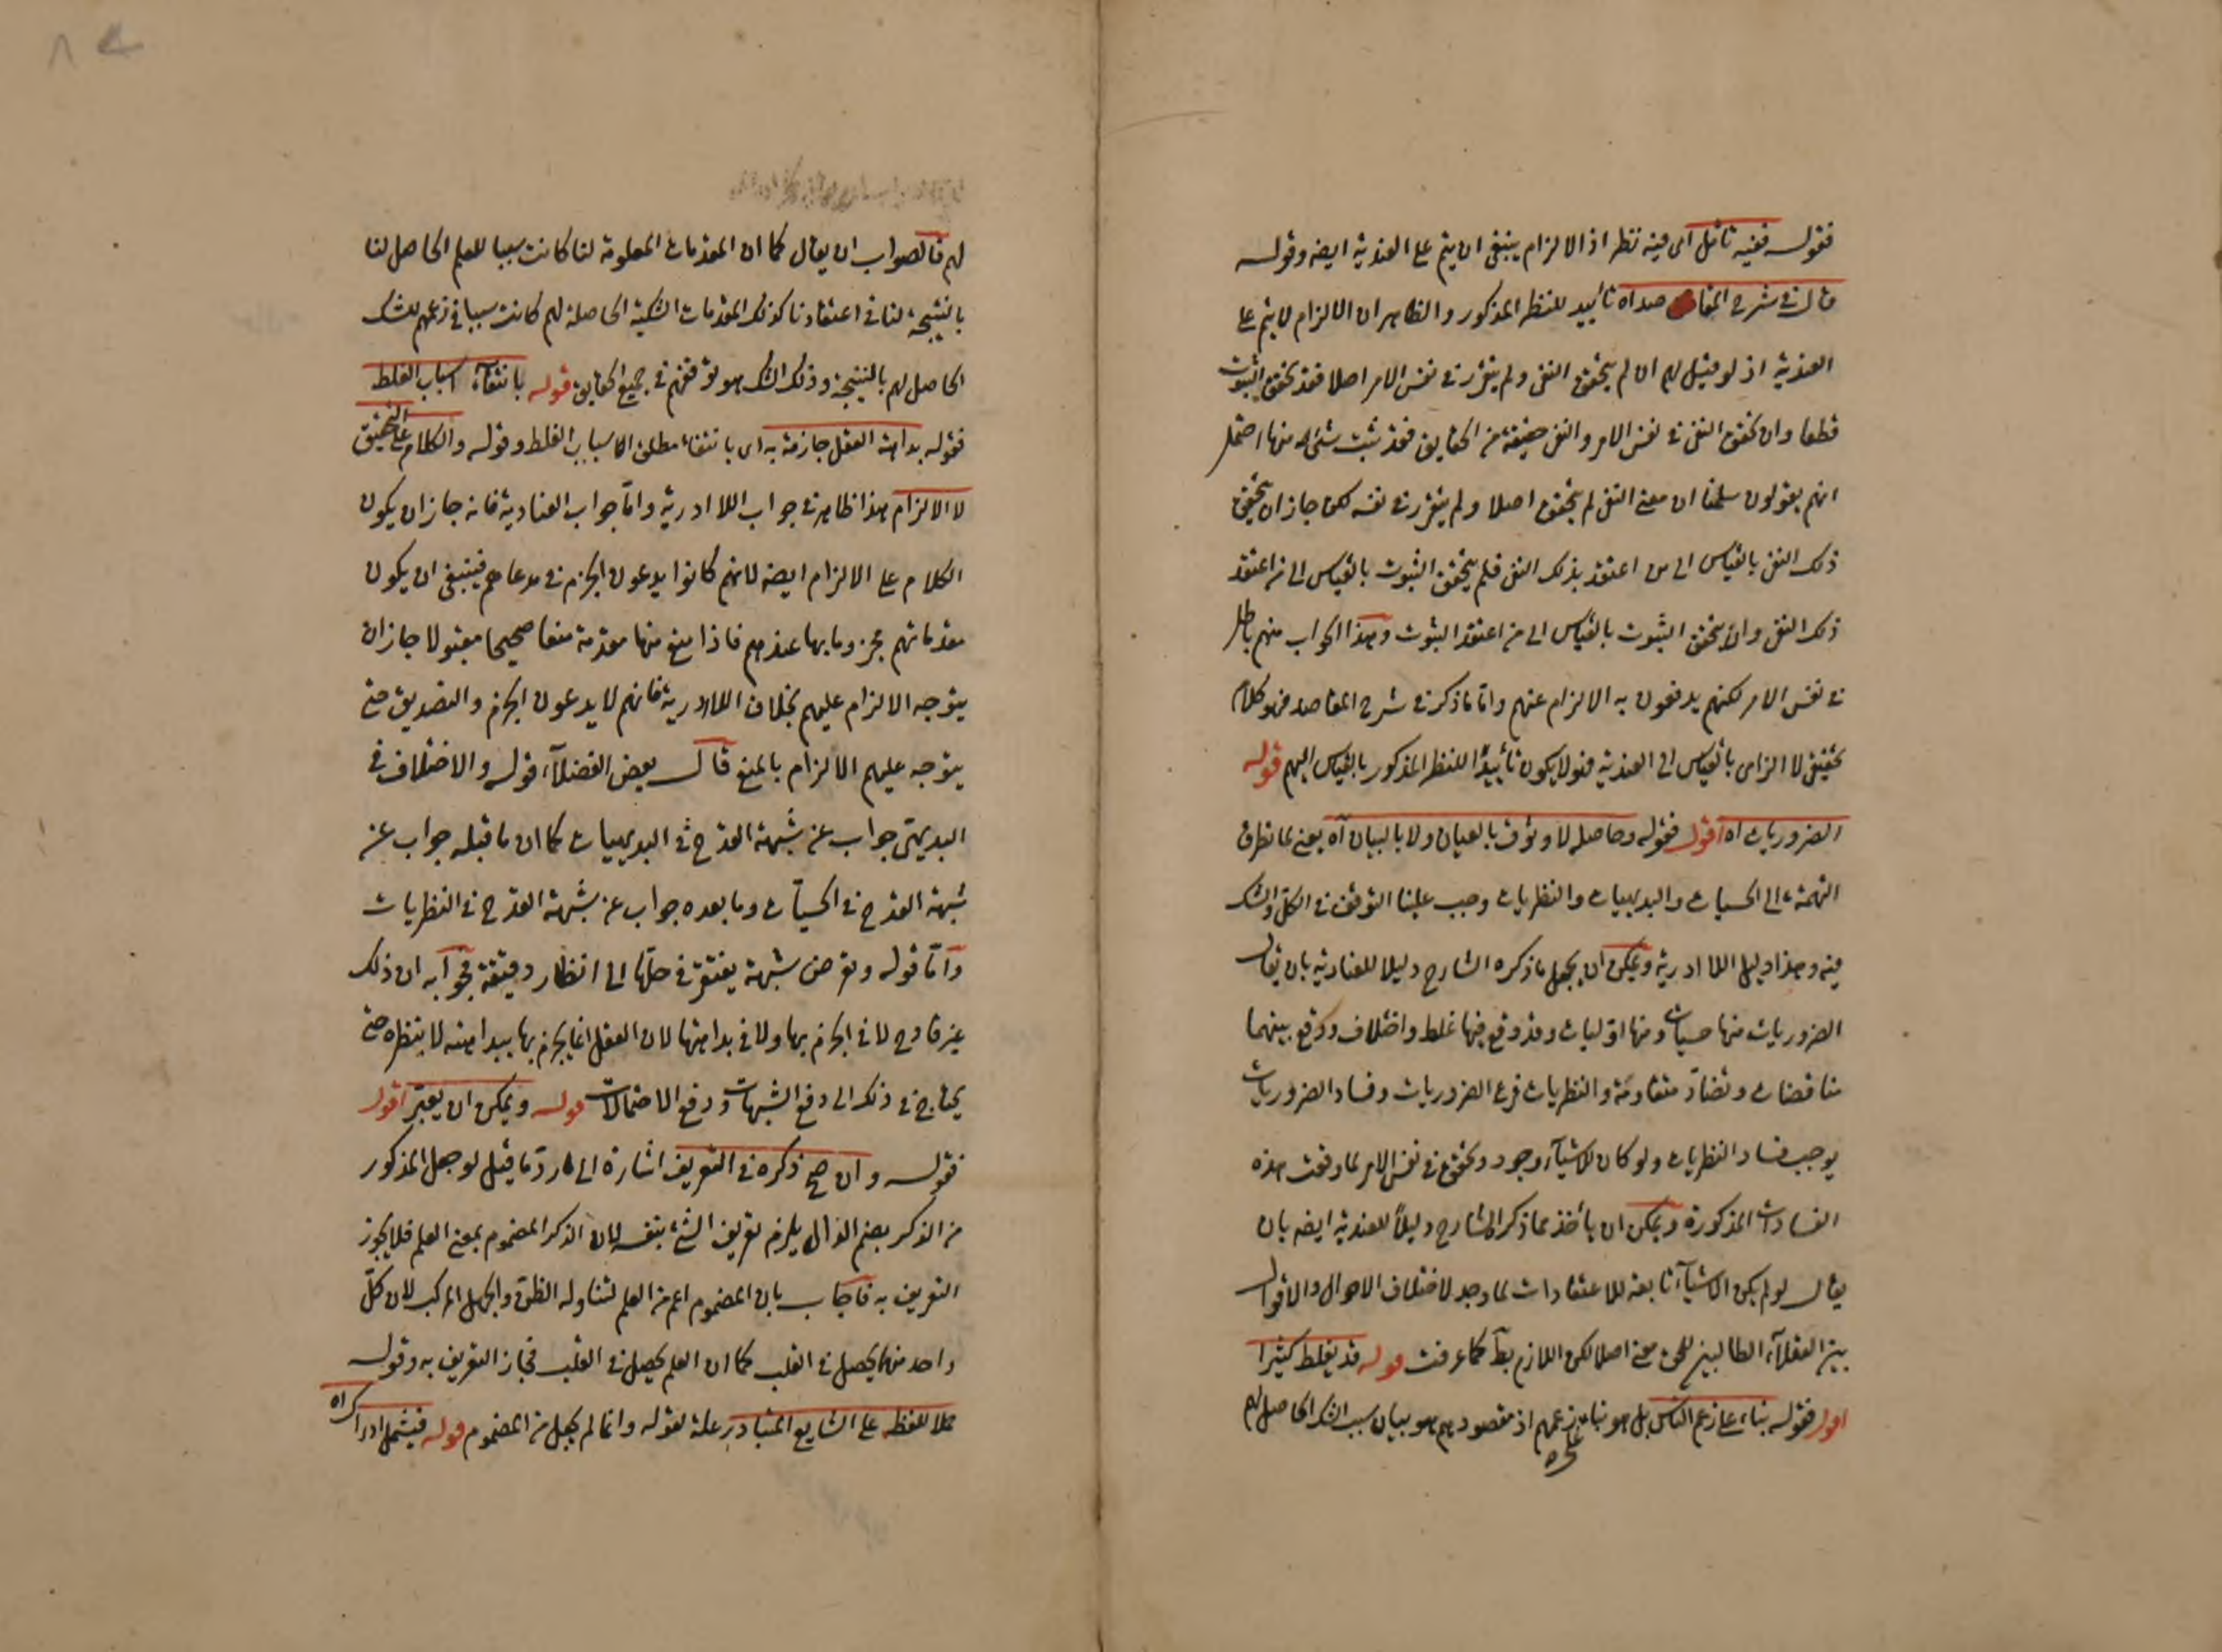 فقوله ففيه تأمل اى فيه نظر اذ الالزام ينبغى ان يتم على العندية ايضه وقوله
قال فى شرح المقاصد اه تأييد للنظر المذكور والظاهر ان الالزام لا يتم على
العندية اذ لو قيل لهم ان لم يتحقق النفى ولم يتقرر فى نفس الامر اصلا فقد تحقق الثبوت
قطعا وان تحقق النفى فى نفس الامر والنفى حقيقة من الحقايق فقد ثبت شئ منها احتمل
انهم يقولون سلمنا ان معنى النفى لم يتحقق اصلا ولم يتقرر فى نفسه لكن جاز ان يتحقق
ذلك النفى بالقياس الى من اعتقد بذلك النفى فلم يتحقق الثبوت بالقياس الى من اعتقد
ذلك النفى وان تحقق الثبوت بالقياس الى من اعتقد الثبوت وهذا الجواب منهم باطل
فى نفس الامر لكنهم يدفعون به الالزام عنهم واما ما ذكر فى شرح المقاصد فهو كلام
تحقيقى لا الزامى بالقياس الى العندية فلا يكون تأييدًا للنظر المذكور بالقياس اليهم قوله
الضروريات اه اقول فقوله وحاصله لا وثوق بالعيان ولا بالبيان آه يعنى لما تطرق
التهمة الى الحسيات والبديهيات والنظريات وجب علينا التوقف فى الكل والشك
فيه وهذا دليل اللاادرية ويمكن ان يجعل ما ذكره الشارح دليلا للعنادية بان يقال
الضروريات منها حسيات ومنها اوليات وقد وقع فيها غلط واختلاف ووقع بينهما
مناقضات وتضاد متقاومة والنظريات فرع الضروريات وفساد الضروريات
يوجب فساد النظريات ولو كان للاشيآء وجود وتحقق فى نفس الامر لما وقعت هذه
الفسادات المذكورة ويمكن ان يأخذ مما ذكر الشارح دليلاً للعندية ايضه بان
يقال لو لم يكن الاشيآء تابعة للاعتقادات لما وجد لاختلاف الاحوال والاقوال
بين العقلآء الطالبين للحق معنى اصلا لكن اللازم بط كما عرفت قوله قد يغلط كثيرا
اقول فقوله بناء على زعم الناس بل هو بناء على زعمهم اذ مقصودهم هو بيان سبب الشك الحاصل لهم
لهم فالصواب ان يقال كما ان المقدمات المعلومة لنا كانت سببا للعلم الحاصل لنا
بالنتيجة لنا فى اعتقادنا كذلك المقدمات الشكية الحاصلة لهم كانت سببا فى زعمهم للشك
الحاصل لهم بالنتيجة وذلك الشك هو توقفهم فى جميع الحقايق قوله بانتفآء اسباب الغلط
فقوله بداهة العقل جازمة به اى بانتفاء مطلق الاسباب الغلط وقوله والكلام على التحقيق
لا الالزام هذا ظاهر فى جواب اللاادرية واما جواب العنادية فانه جاز ان يكون
الكلام على الالزام ايضه لانهم كانوا يدعون الجزم فى مدعاهم فينبغى ان يكون
مقدماتهم مجزوما بها عندهم فاذا منع منها مقدمة منعا صحيحا مقبولا جاز ان
يتوجه الالزام عليهم بخلاف اللاادرية فانهم لا يدعون الجزم والتصديق حتى
يتوجه عليهم الالزام بالمنع قال بعض الفضلآء قوله والاختلاف فى
البديهى جواب عن شبهة القدح فى البديهيات كما ان ما قبله جواب عن
شبهة القدح فى الحسيات وما بعده جواب عن شبهة القدح فى النظريات
واما قوله وتعرض شبهة يفتقر فى حلها الى انظار دقيقة فجوابه ان ذلك
غير قادح لا فى الجزم بها ولا فى بداهتها لان العقل انما يجزم بها ببداهته لا بنظره حتى
يحتاج فى ذلك الى دفع الشبهات ورفع الاحتمالات قوله ويمكن ان يعتبر اقول
فقوله وان صح ذكره فى التعريف اشارة الى رد ما قيل لو جعل المذكور
من الذكر بضم الذال يلزم تعريف الشئ بنفسه لان الذكر المضموم بمعنى العلم فلا يجوز
التعريف به فاجاب بان المضموم اعم من العلم لتناوله الظن والجهل المركب لان كل
واحد منها يحصل فى القلب كما ان العلم يحصل فى القلب فجاز التعريف به وقوله
حملا للفظه على الشايع المتبادر علة لقوله وانما لم يجعل من المضموم قوله فيشمل ادراك اه